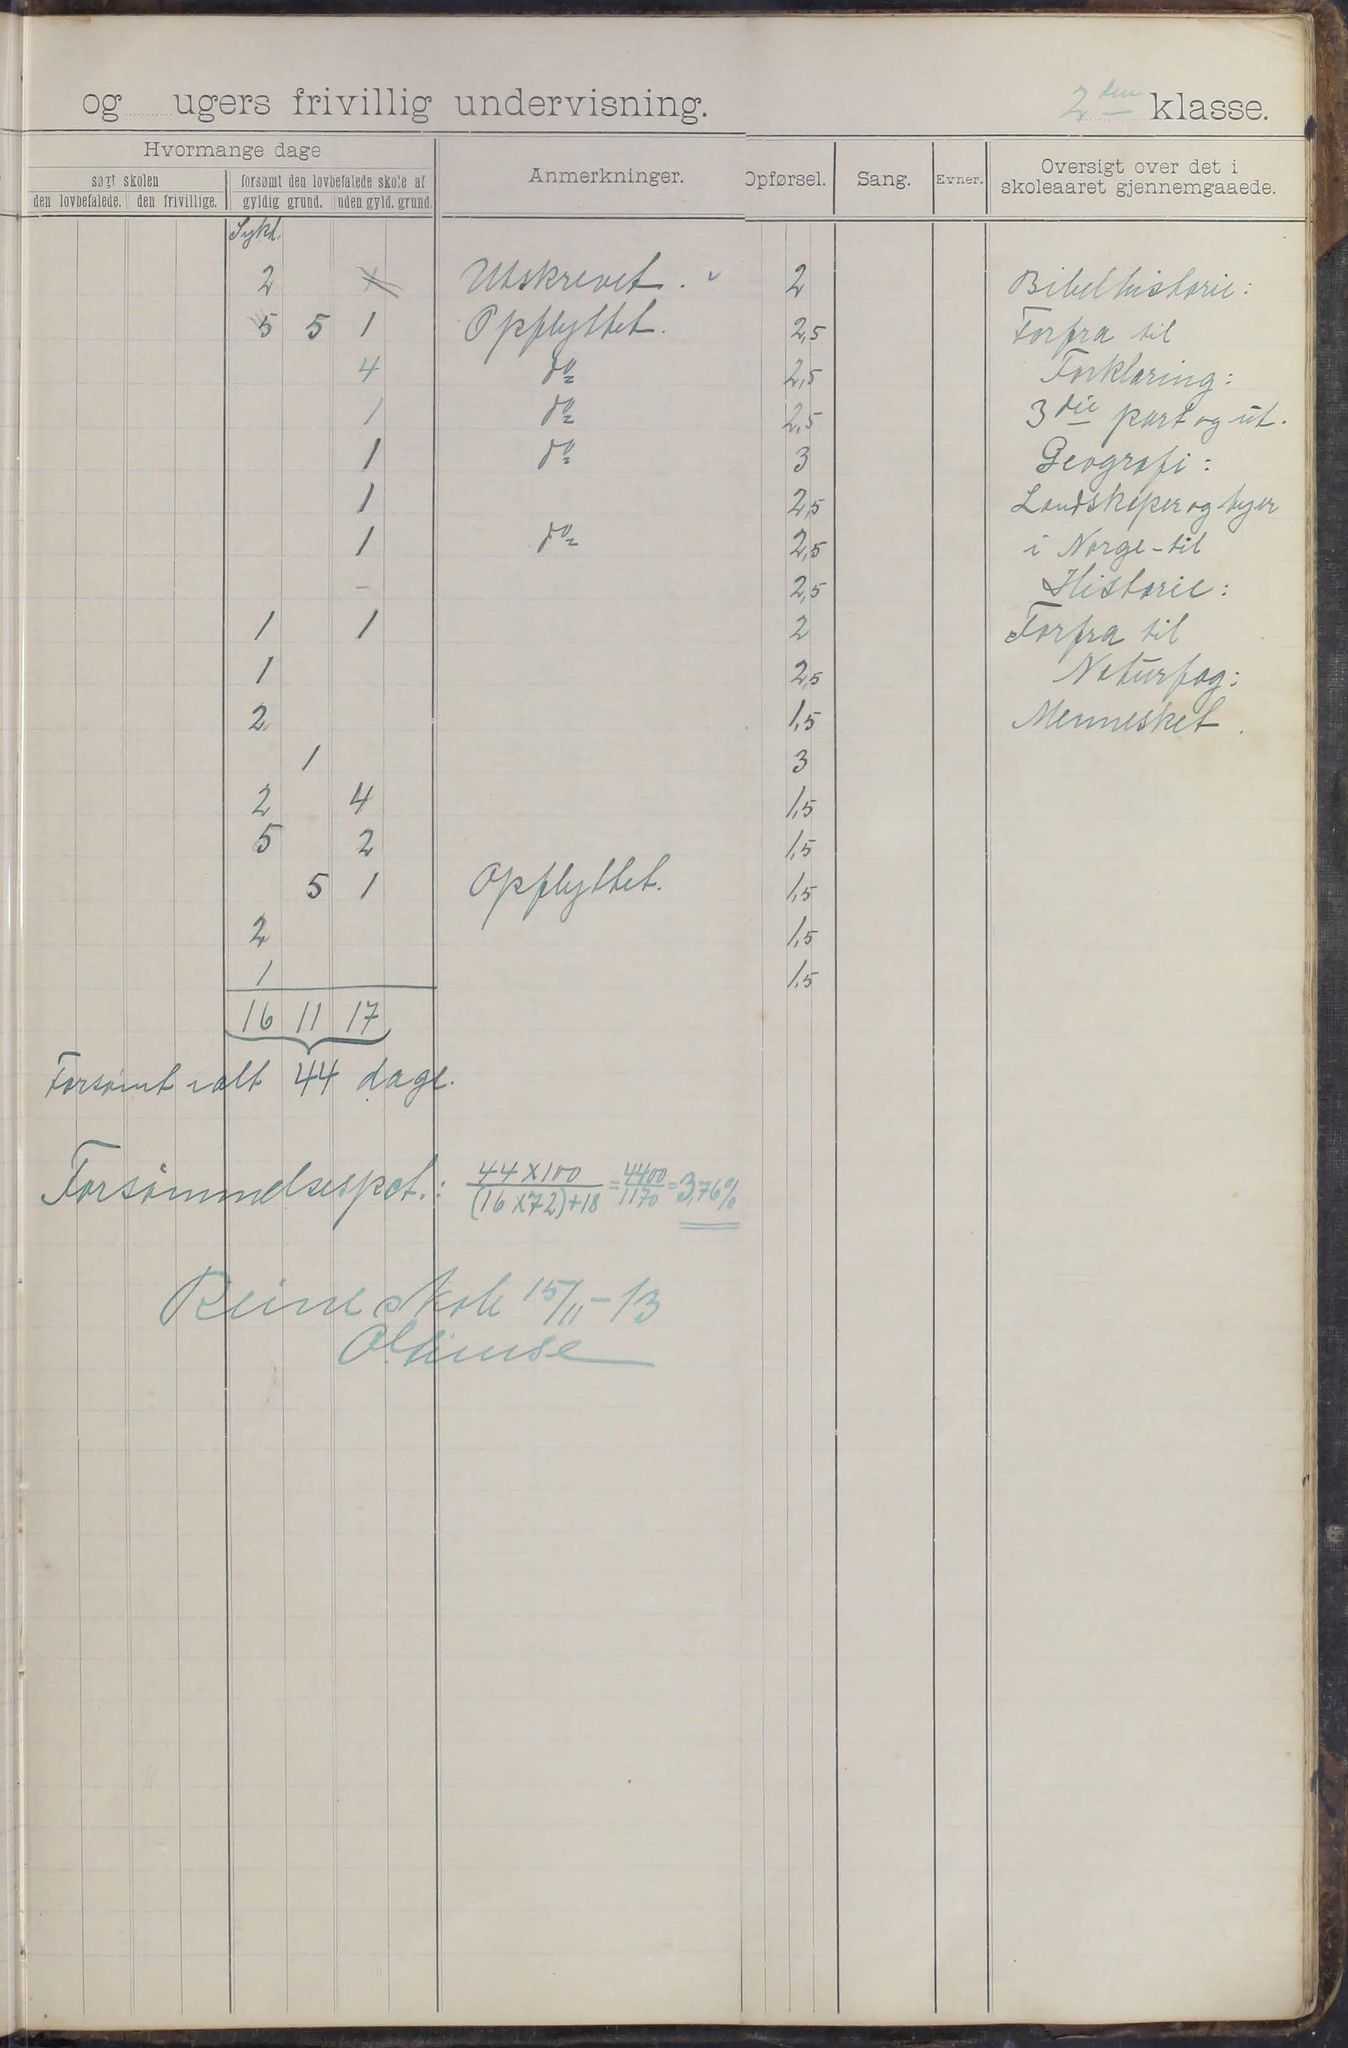 og ugers frivillig undervisning. 2den klasse.
Hvormange dage Anmerkninger. Opførsel. Sang. Evner. Oversigt over det i skoleaaret gjennemgaaede.
søgt skolen forsømt den lovbefalede skole af
den lovbefalede. den frivillige. gyldig grund. uden gyld. grund.
Sykd.
2 Utskrevet. 2 Bibelhistorie:
5 5 1 Opflyttet. 2,5 Forfra til
4 do 2,5 Forklaring:
1 do 2,5 3die part og ut.
1 do 3 Geografi:
1 2,5 Landskaper og byer
1 do 2,5 i Norge - til
- 2,5 Historie:
1 1 2 Forfra til
1 2,5 Naturfag:
2 1,5 Mennesket.
1 3
2 4 1,5
5 2 1,5
5 1 Opflyttet. 1,5
2 1,5
1 1,5
16 11 17
Forsømt ialt 44 dage.
Forsømmelsespct.: 44 x 100 / (16 x 72) + 18 = 4400 / 1170 = 3,76%
Reine skole 15/11 - 13